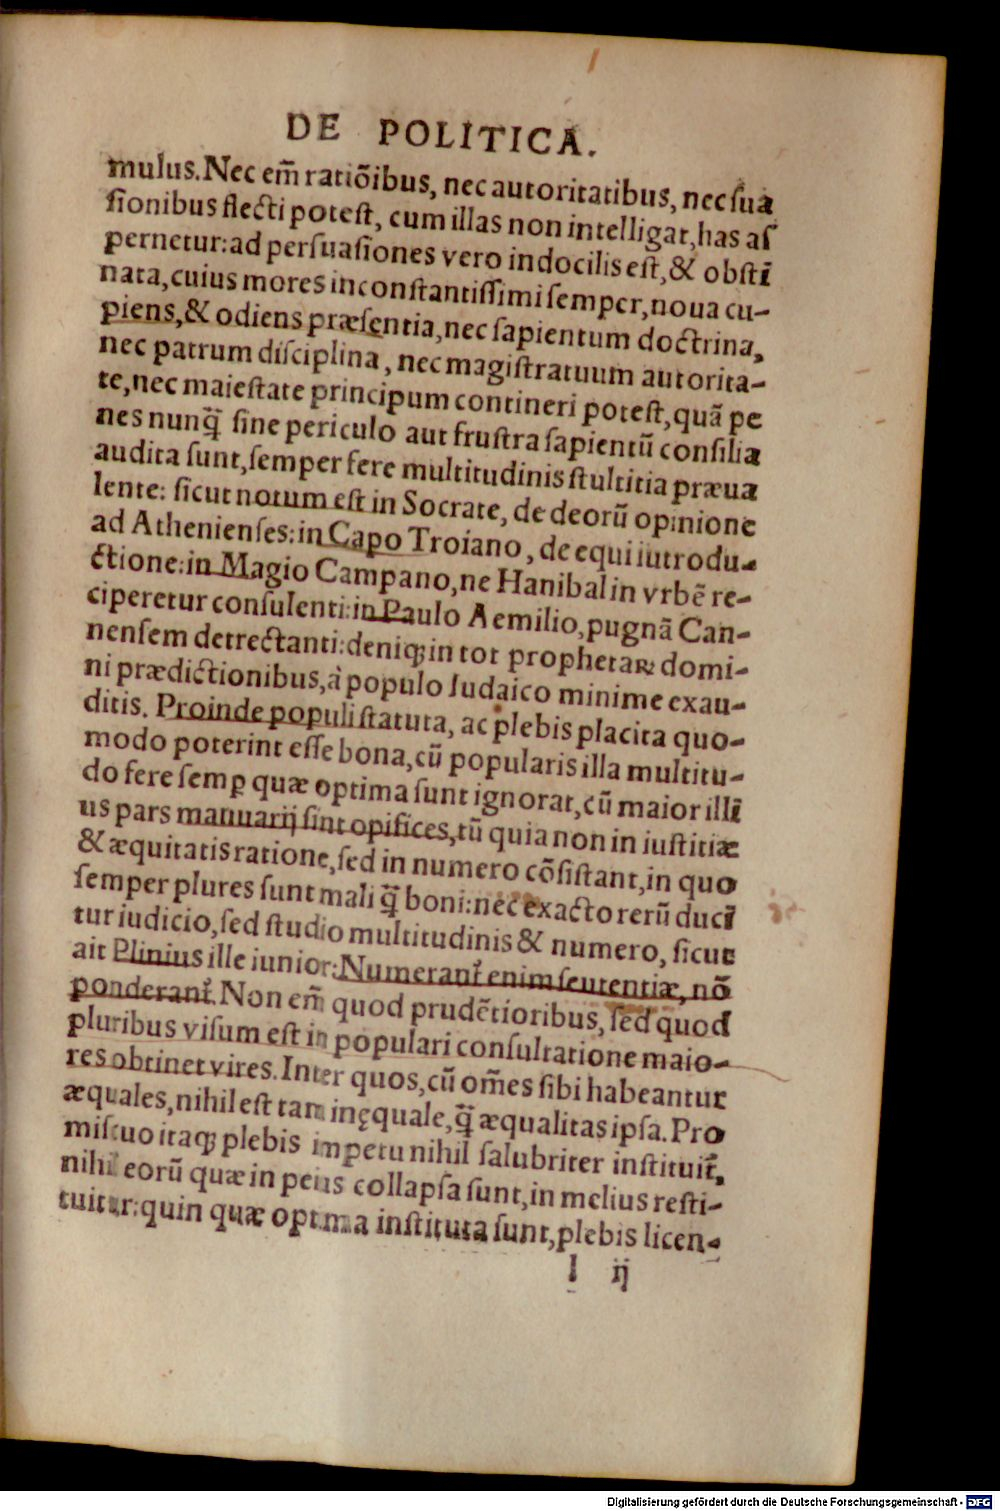 DE POLITICA.
mulus. Nec em̃ ratiõibus, nec autoritatibus, nec ſua
ſionibus flecti poteſt, cum illas non intelligat, has aſ
pernetur: ad perſuaſiones vero indocilis eſt, & obſti
nata, cuius mores inconſtantiſſimi ſemper, noua cu-
piens, & odiens præſentia, nec ſapientum doctrina,
nec patrum diſciplina, nec magiſtratuum autorita-
te, nec maieſtate principum contineri poteſt, quã pe
nes nunq̃ ſine periculo aut fruſtra ſapientũ conſilia
audita ſunt, ſemper fere multitudinis ſtultitia præua
lente: ſicut notum eſt in Socrate, de deorũ opinione
ad Athenienſes: in Capo Troiano, de equi iutrodu-
ctione: in Magio Campano, ne Hanibal in vrbẽ re-
ciperetur conſulenti: in Paulo Aemilio, pugnã Can-
nenſem detrectanti: deniqꝫ in tot prophetaꝝ domi-
ni prædictionibus, à populo Iudaico minime exau-
ditis. Proinde populi ſtatuta, ac plebis placita quo-
modo poterint eſſe bona, cũ popularis illa multitu-
do fere ſemꝑ quæ optima ſunt ignorat, cũ maior illi
us pars manuarij ſint opifices, tũ quia non in iuſtitiæ
& æquitatis ratione, ſed in numero cõſiſtant, in quo
ſemper plures ſunt mali q̃ boni: nec exacto rerũ duci
tur iudicio, ſed ſtudio multitudinis & numero, ſicut
ait Plinius ille iunior: Numerant᷑ enim ſeutentiæ, nõ
ponderant᷑. Non em̃ quod prudẽtioribus, ſed quod
pluribus viſum eſt in populari conſultatione maio-
res obtinet vires. Inter quos, cũ om̃es ſibi habeantur
æquales, nihil eſt tam inęquale, q̃ æqualitas ipſa. Pro
miſcuo itaqꝫ plebis impetu nihil ſalubriter inſtituit᷑,
nihil eorũ quæ in peius collapſa ſunt, in melius reſti-
tuitur: quin quæ optima inſtituta ſunt, plebis licen-
l ij
Digitalisierung gefördert durch die Deutsche Forschungsgemeinschaft - DFG